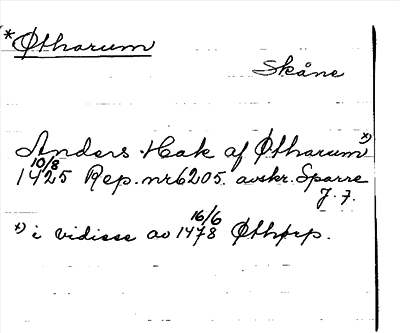 *Øtharum
Skåne
Anders Hak af Øtharum *)
10/8 1425 Rep. nr 6205. avskr. Sparre
J. 7.
*) i vidisse av 16/6 1478 Øthrp.